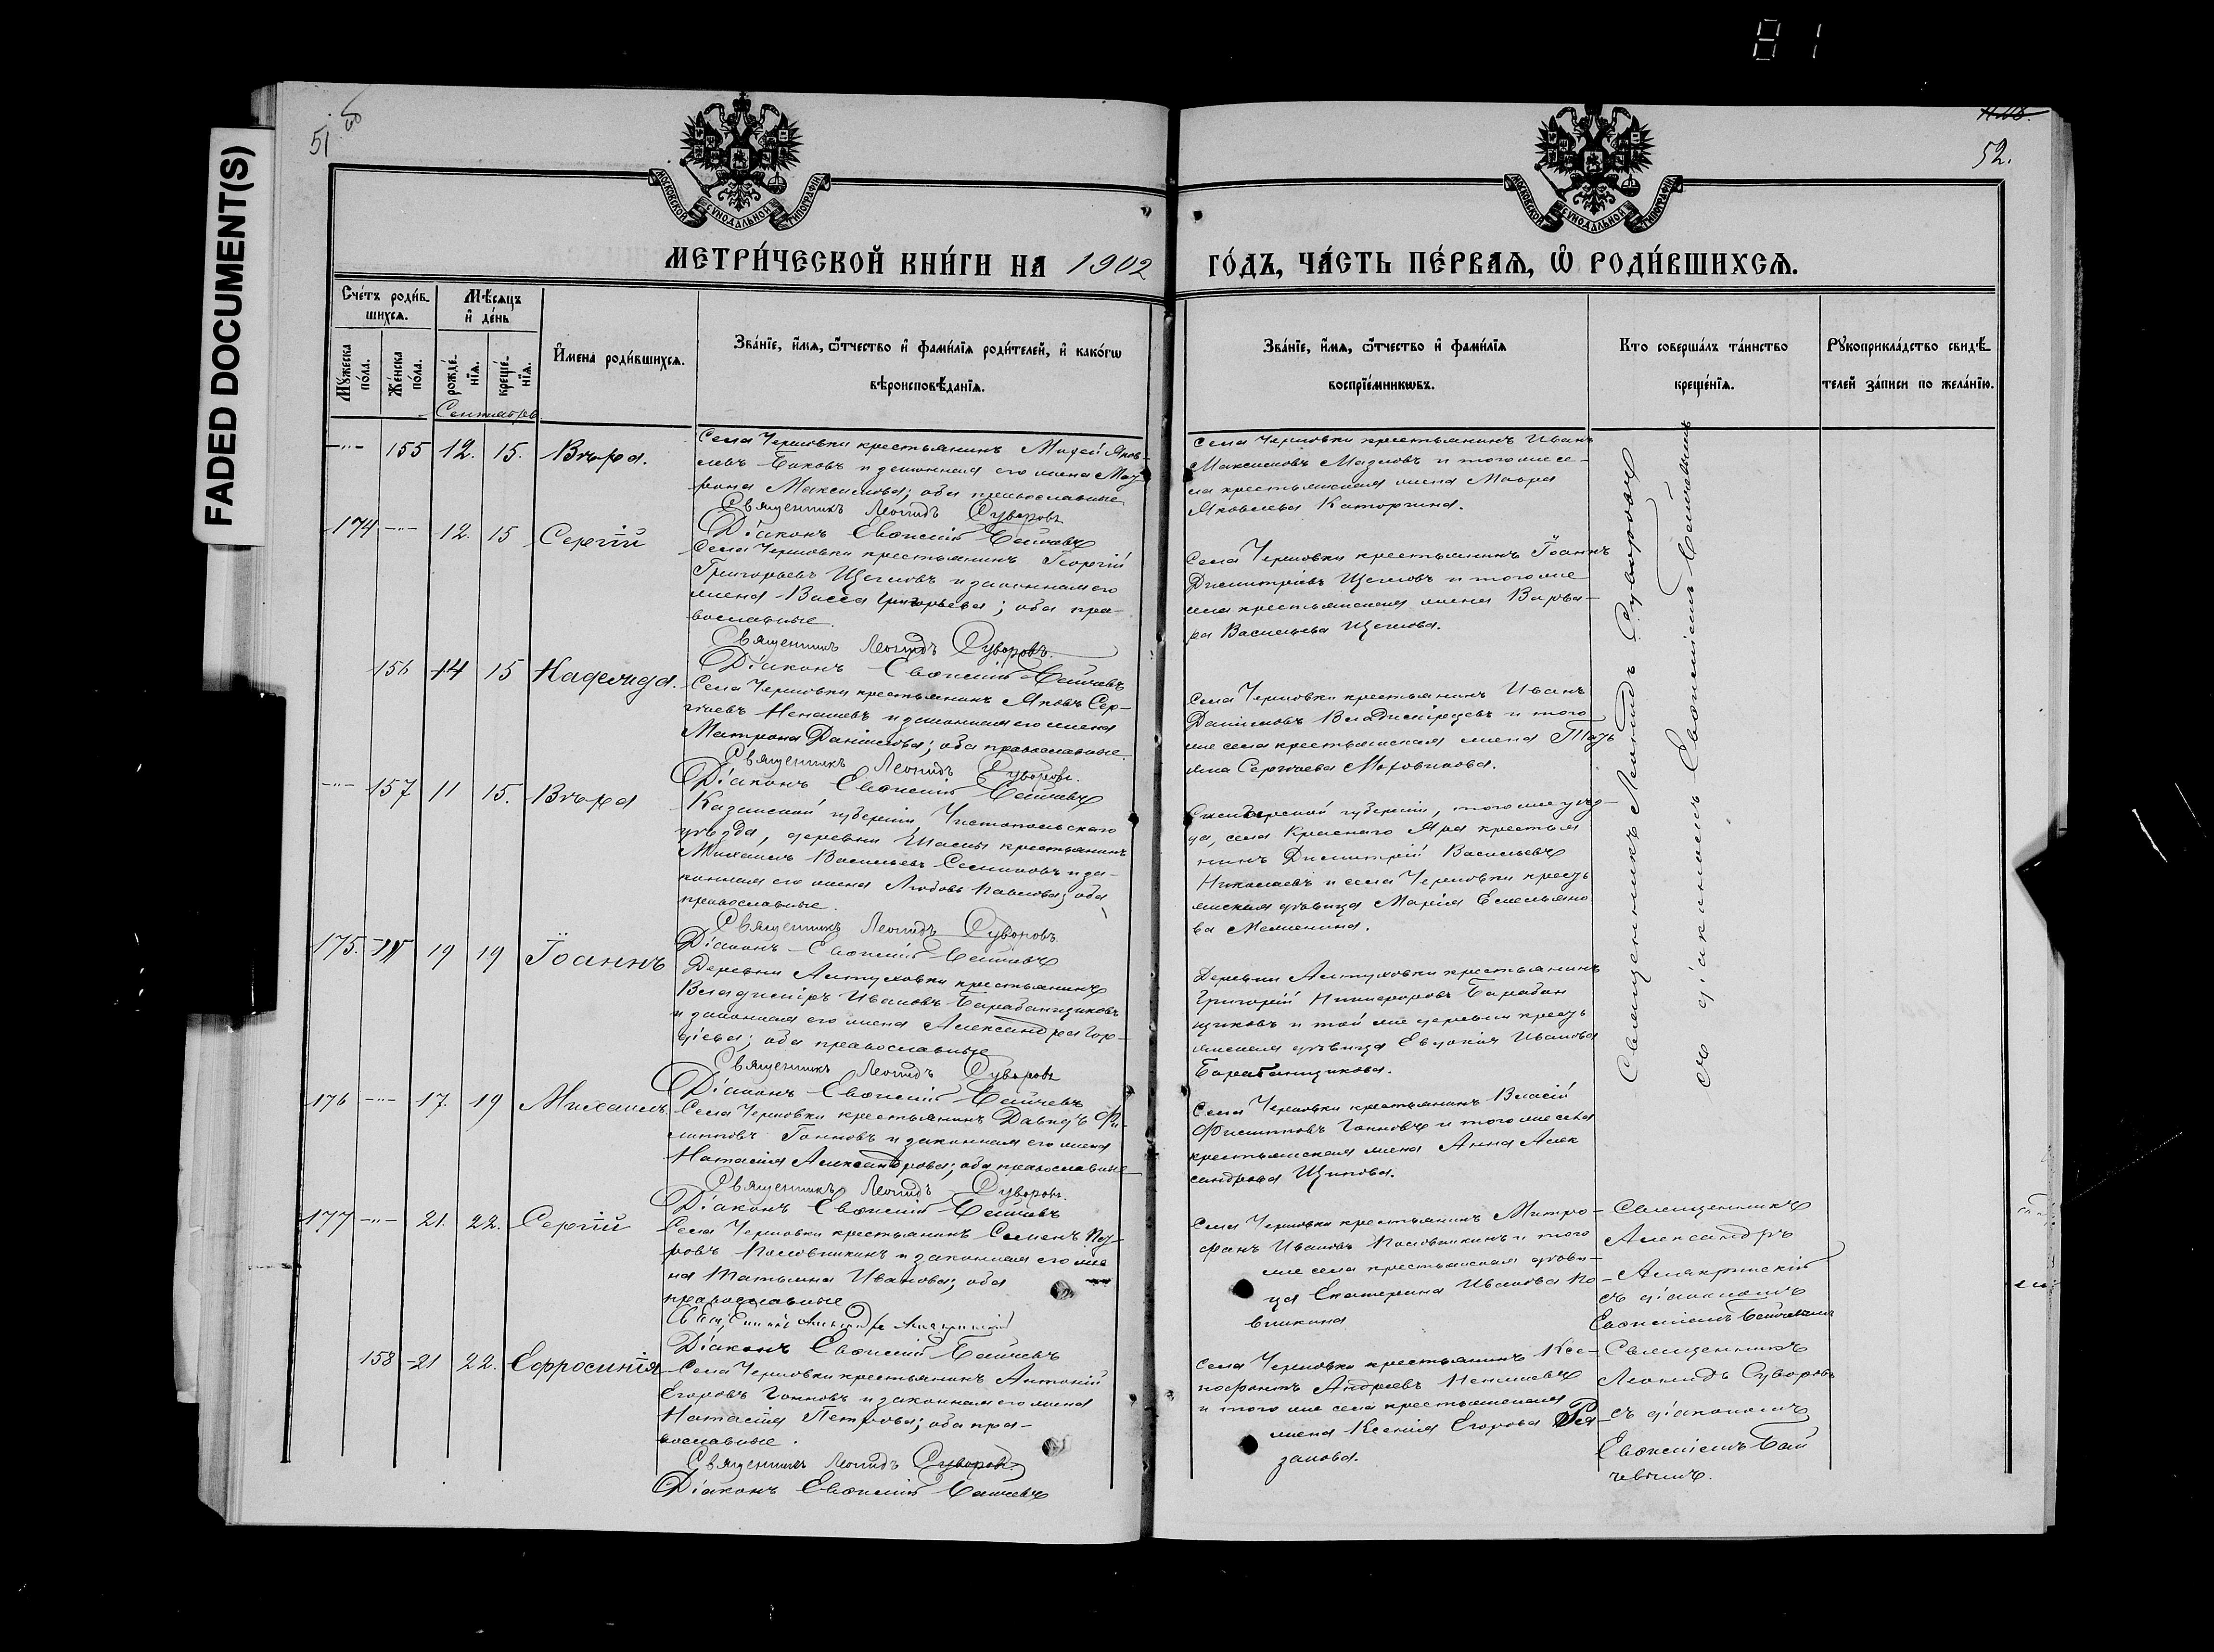 81
FADED DOCUMENT(S)
51 об
52.
МОСКОВСКОЙ СУНОДАЛЬНОЙ ТИПОГРАФІИ
МОСКОВСКОЙ СУНОДАЛЬНОЙ ТИПОГРАФІИ
МЕТРИ́ЧЕСКОЙ КНИ́ГИ НА 1902
ГО́ДЪ, ЧА́СТЬ ПЕ́РВАѦ, Ѽ РОДИ́ВШИХСѦ.
Сче́тъ роди́в-
шихсѧ.
Мѣ́сяцъ
и҆ де́нь
Му́жеска
по́ла.
Же́нска
по́ла.
рожде́-
нїѧ.
креще́-
нїѧ.
И҆мена̀ роди́вшихсѧ.
Зва́нїе, и҆́мѧ, ѻ҆́тчество и҆ фами́лїѧ роди́телей, и҆ како́гѡ
вѣроисповѣ́данїѧ.
Зва́нїе, и҆́мѧ, ѻ҆́тчество и҆ фами́лїѧ
воспрїе́мникѡвъ.
Кто̀ соверша́лъ та́инство
креще́нїѧ.
Рꙋкоприкла́дство свидѣ́-
телей за́писи по жела́нїю.
Сентябрь
155 12. 15. Вѣра.
Села Черновки крестьянинъ Яков-
левъ и законная его жена Мат-
рона Максимова; оба православные
Священникъ Леонидъ Суворовъ
Діаконъ Евѳимій
Села Черновки крестьянинъ Иванъ
Максимовъ и того же се-
ла крестьянская жена Мавра
Яковлева Каторгина.
174 12. 15 Сергій
Села Черновки крестьянинъ Георгій
Григорьевъ Щегловъ и законная его
жена Васса Григорьева; оба пра-
вославные.
Священникъ Леонидъ Суворовъ.
Діаконъ Евѳимій
Села Черновки крестьянинъ Іоаннъ
Димитріевъ Щегловъ и того же
села крестьянская жена Варва-
ра Васильева Щеглова.
156 14 15 Надежда.
Села Черновки крестьянинъ Яковъ Сер-
гѣевъ Ненашевъ и законная его жена
Матрона Даніилова; оба православные.
Священникъ Леонидъ Суворовъ.
Діаконъ Евѳимій
Села Черновки крестьянинъ Иванъ
Даниловъ Владимірцевъ и того
же села крестьянская жена Тать
яна Сергѣева
157 11 15. Вѣра
Казанской губерніи, Чистопольскаго
уѣзда, деревни крестьянинъ
Михаилъ Васильевъ Семиновъ и за-
конная его жена Любовь Павлова; оба
православные.
Священникъ Леонидъ Суворовъ
Діаконъ Евѳимій
Симбирской губерніи, того же уѣз-
да, села Краснаго Яра крестья
нинъ Димитрій Васильевъ
Николаевъ и села Черновки кресть
янская дѣвица Марія Емельяно
ва
175. 19 19 Іоаннъ
Деревни Алтуховки крестьянинъ
Владиміръ Ивановъ Барабанщиковъ
и законная его жена Александра Гор-
дѣева; оба православные
Священникъ Леонидъ Суворовъ
Діаконъ Евѳимій
Деревни Алтуховки крестьянинъ
Григорій Никифоровъ Барабан
щиковъ и той же деревни кресть
янская дѣвица Евдокія Иванова
Барабанщикова.
176 17. 19 Михаилъ
Села Черновки крестьянинъ Давидъ Фи-
липповъ и законная его жена
Наталія Александрова; оба православные
Священникъ Леонидъ Суворовъ.
Діаконъ Евѳимій
Села Черновки крестьянинъ Власій
Филипповъ и того же села
крестьянская жена Анна Алек
сандрова Щипова.
177 21. 22. Сергій
Села Черновки крестьянинъ Семенъ
и законная его же
на Татьяна Иванова; оба
православные
Діаконъ Евѳимій
Села Черновки крестьянинъ Митро-
фанъ Ивановъ и того
же села крестьянская дѣви-
ца Екатерина Иванова
Священникъ
Александръ
съ діакономъ
Евѳиміемъ
158 21 22. Ефросинія
Села Черновки крестьянинъ Антоній
Егоровъ и законная его жена
Наталія Петрова; оба пра-
вославные.
Священникъ Леонидъ Суворовъ
Діаконъ Евѳимій
Села Черновки крестьянинъ Ксе-
нофонтъ Андреевъ Ненашевъ
и того же села крестьянская
жена Ксенія Егорова Ря
занова.
Священникъ
Леонидъ Суворовъ
съ діакономъ
Евѳиміемъ
Священникъ Леонидъ Суворовъ
съ діакономъ Евѳиміемъ